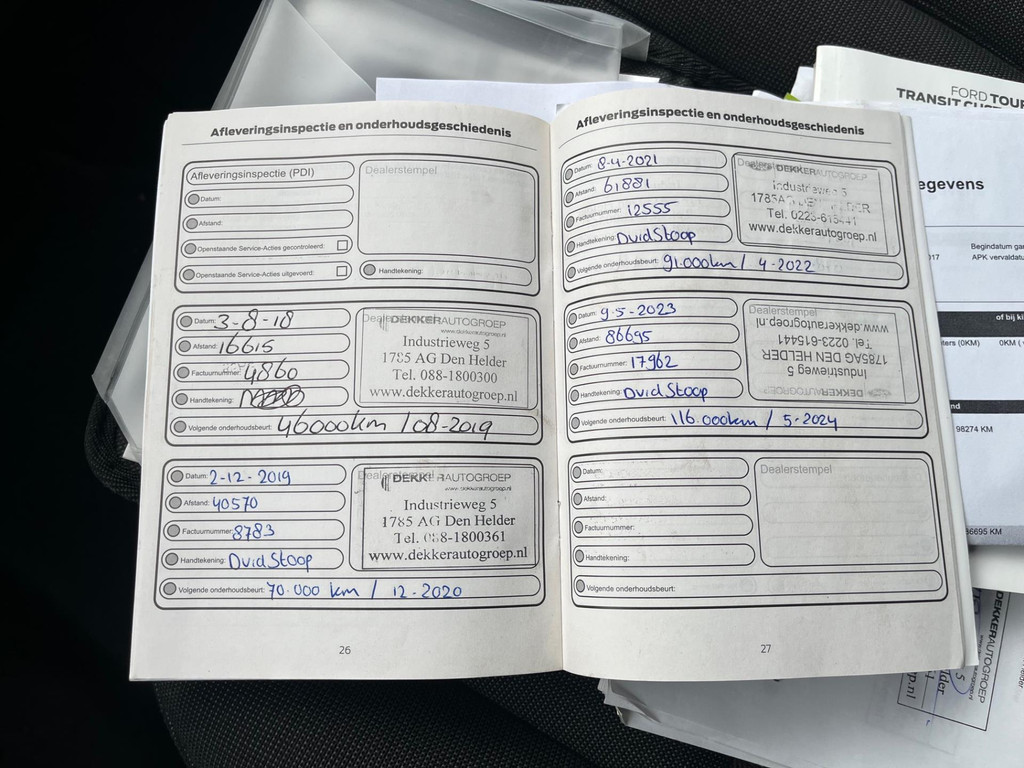 Afleveringsinspectie en onderhoudsgeschiedenis
Afleveringsinspectie (PDI)
Datum:
Afstand:
Openstaande Service-Acties gecontroleerd:
Openstaande Service-Acties uitgevoerd:
Dealerstempel
Handtekening:
Datum: 3-8-18
Afstand: 16615
Factuurnummer: 4860
Handtekening:
Volgende onderhoudsbeurt: 46000km /08-2019
DEKKERAUTOGROEP
www.dekkerautogroep.nl
Industrieweg 5
1785 AG Den Helder
Tel. 088-1800300
www.dekkerautogroep.nl
Datum: 2-12-2019
Afstand: 40570
Factuurnummer: 8783
Handtekening: DvidStoop
Volgende onderhoudsbeurt: 70.000 km / 12-2020
Dealerstempel
DEKKERAUTOGROEP
www.dekkerautogroep.nl
Industrieweg 5
1785 AG Den Helder
Tel. 088-1800361
www.dekkerautogroep.nl
26
Afleveringsinspectie en onderhoudsgeschiedenis
Datum: 8-4-2021
Afstand: 61881
Factuurnummer: 12555
Handtekening: DvidStoop
Volgende onderhoudsbeurt: 91.000km / 4-2022
Dealerstempel
DEKKERAUTOGROEP
Industrieweg 5
1785AG DEN HELDER
Tel. 0223-615441
www.dekkerautogroep.nl
Datum: 9-5-2023
Afstand: 86695
Factuurnummer: 17962
Handtekening: DvidStoop
Volgende onderhoudsbeurt: 116.000km / 5-2024
Dealerstempel
DEKKERAUTOGROEP
Industrieweg 5
1785AG DEN HELDER
Tel. 0223-615441
www.dekkerautogroep.nl
Datum:
Afstand:
Factuurnummer:
Handtekening:
Volgende onderhoudsbeurt:
Dealerstempel
27
FORD TOUR
TRANSIT CUST
egevens
Begindatum ga
017 APK vervaldat
of bij ki
ters (0KM) 0KM (
nd
98274 KM
86695 KM
DEKKERAUTOGROEP
lder
p.nl